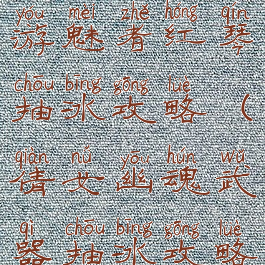 yóu mèi zhě hóng qín
游魅者红琴
chōu bīng gōng lüè
抽冰攻略（
qiàn nǚ yōu hún wǔ
倩女幽魂武
qì chōu bīng gōng lüè
器抽冰攻略